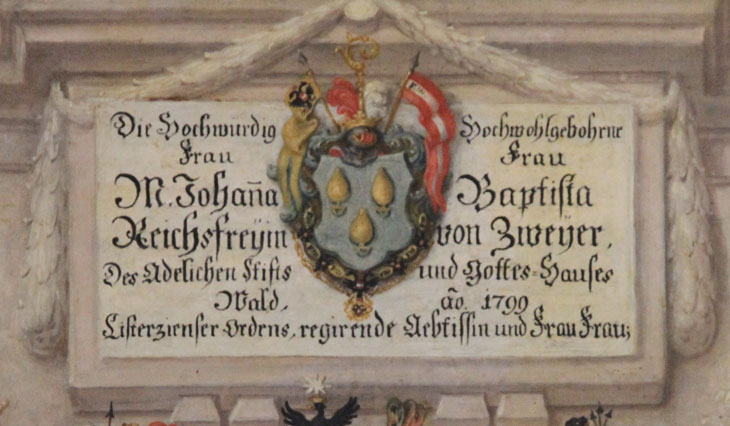 Die Hochwürdig Hochwohlgebohrne
Frau Frau
M. Johaña Baptista
Reichsfreÿin von Zweÿer,
Des Adelichen Stifts und Gottes=Hauses
Wald, aõ. 1799
Cisterzienser Ordens, regirende Aebtissin und Frau Frau;